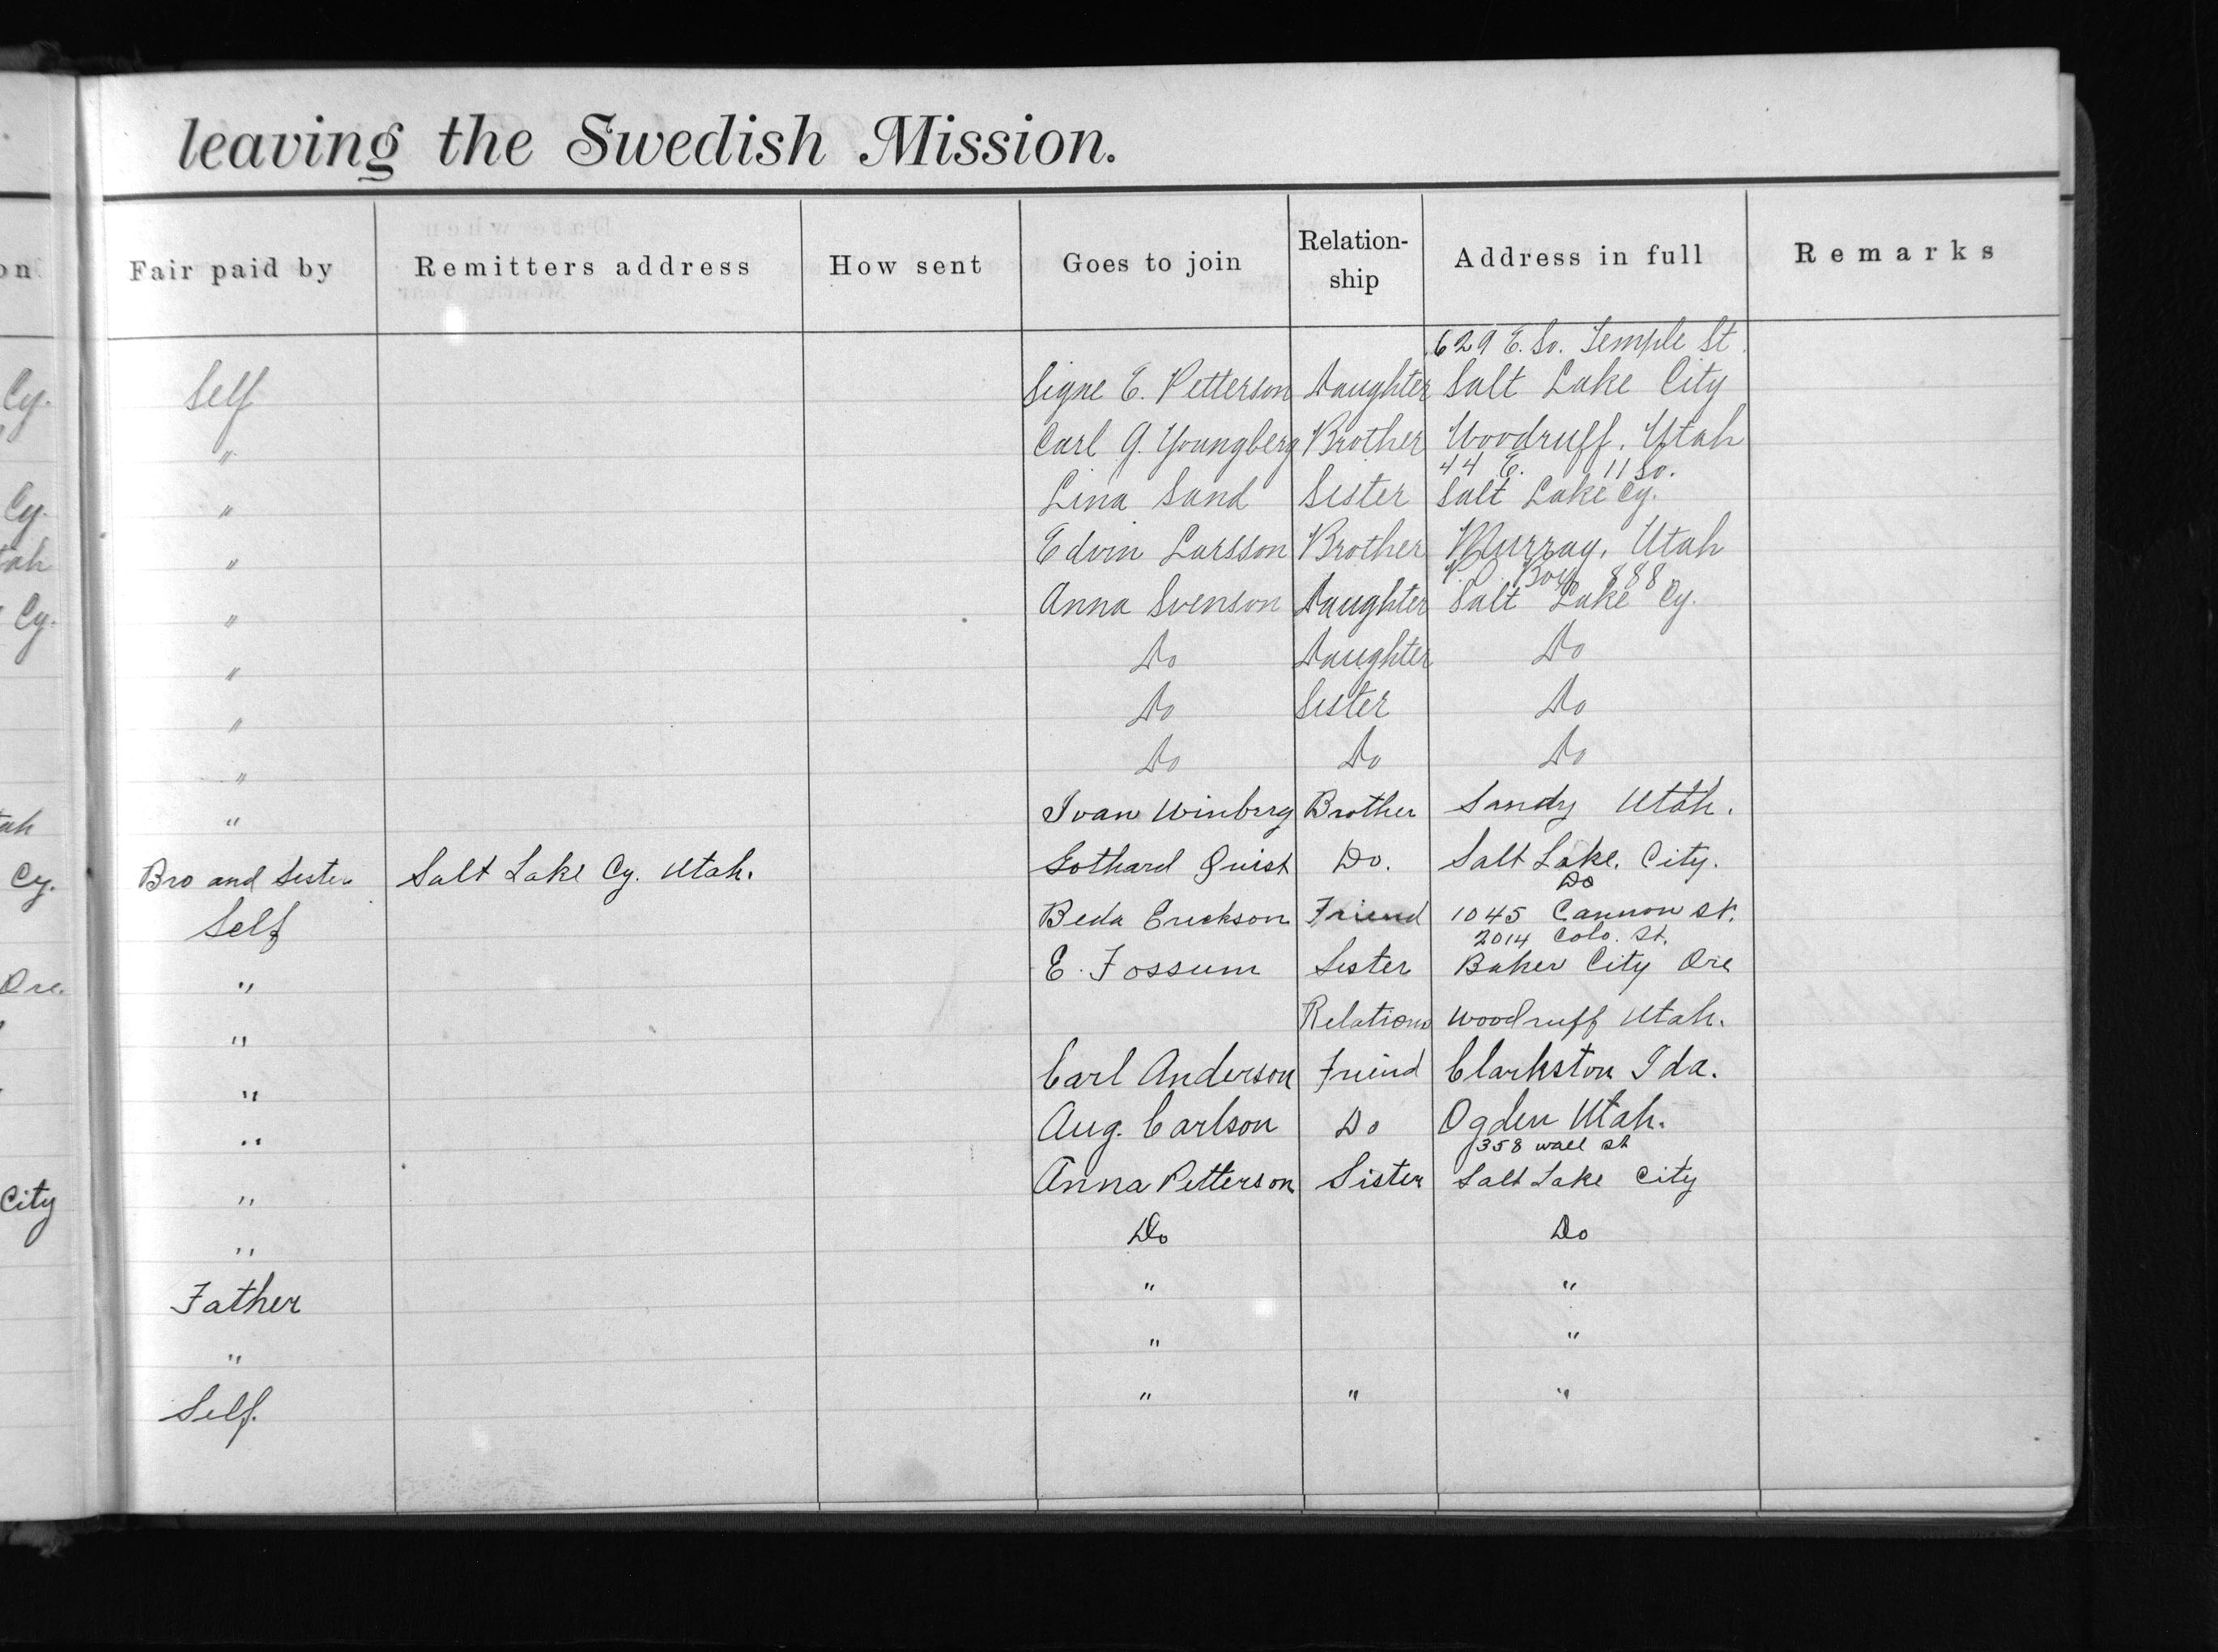 leaving the Swedish Mission.
on Fair paid by Remitters address How sent Goes to join Relation-ship Address in full Remarks
629 E. So. Temple St.
Cy. Self Signe E. Petterson Daughter Salt Lake City
" Carl G. Youngberg Brother Woodruff, Utah
44 E. 11 So.
Cy. " Lina Sand Sister Salt Lake Cy.
tah " Edvin Larsson Brother Murray, Utah
P.O. Box 888
Cy. " Anna Svenson Daughter Salt Lake Cy.
" Do Daughter Do
" Do Sister Do
" Do Do Do
tah " Ivan Winberg Brother Sandy Utah.
Cy. Bro and Sister Salt Lake Cy. Utah. Gothard Quist Do. Salt Lake. City.
Do
Self Beda Erickson Friend 1045 Cannon St.
2014 Colo. St.
Ore. " E. Fossum Sister Baker City Ore
" Relations Woodruff Utah.
" Carl Anderson Friend Clarkston Ida.
" Aug. Carlson Do Ogden Utah.
358 Wall St
City " Anna Petterson Sister Salt Lake City
" Do Do
Father " "
" " "
Self. " " "